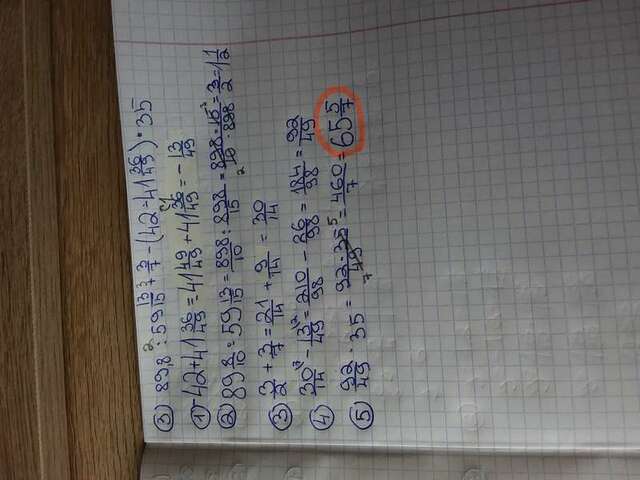 ③ 89,8 : 59 13/15 + 3/7 - (42 - 41 36/49) · 35
① -42 + 41 36/49 = 41 49/49 + 41 36/49 = - 13/49
② 89 8/10 : 59 13/15 = 898/10 : 898/15 = 898 · 15/10 · 898 = 3/2 = 1 1/2
③ 3/2 + 3/7 = 21/14 + 9/14 = 30/14
④ 30/14 - 13/49 = 210/98 - 26/98 = 184/98 = 92/49
⑤ 92/49 · 35 = 92 · 35/49 = 460/7 = 65 5/7